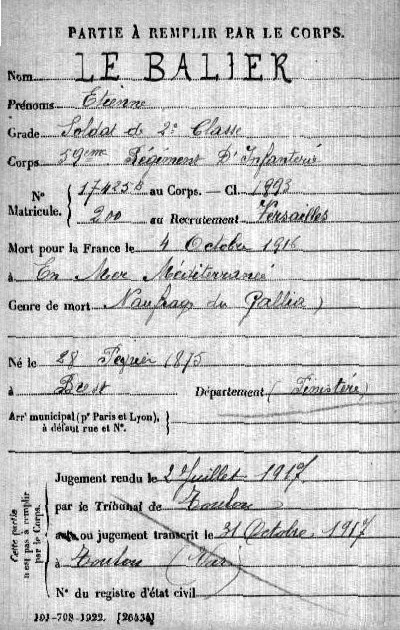 PARTIE À REMPLIR PAR LE CORPS.
Nom LE BALIER
Prénoms Etienne
Grade Soldat de 2e Classe
Corps 59eme Régiment D'Infanterie
No Matricule. { 17425 au Corps. — Cl. 1893
200 au Recrutement Versailles
Mort pour la France le 4 Octobre 1916
à En Mer Méditerranée
Genre de mort Naufrage du Gallia)
Né le 28 1875
à Brest Département (Finistère)
Arrt municipal (pr Paris et Lyon), à défaut rue et No. }
Cette partie n'est pas à remplir par le Corps.
Jugement rendu le 2 Juillet 1917
par le Tribunal de Toulon
ou jugement transcrit le 31 Octobre 1917
à Toulon (Var)
No du registre d'état civil
101-708-1922. [26434]